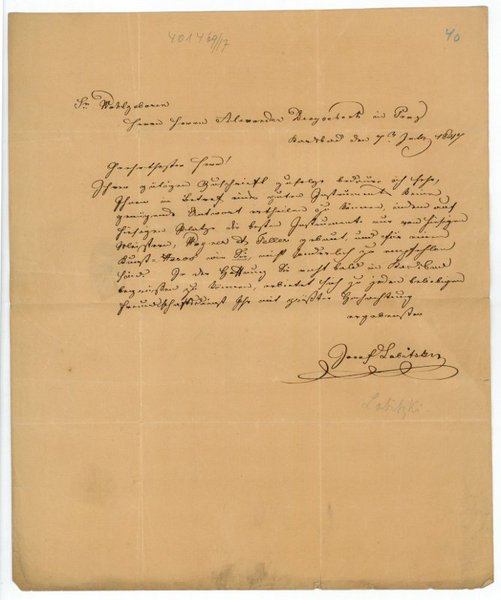 401469/17
40
Sr Wohlgeboren
Herrn Herrn Alexander Dreyschock in Prag
Karlsbad den 7n July 1847
Geehrthester Herr!
Ihrer gütigen Zuschrift zufolge bedaure ich sehr,
Ihnen in Betref eines guten Instruments keine
genügende Antwort ertheilen zu können, indem auf
hiesigem Platze die besten Instrumente nur von hiesigen
Meistern, gebaut, und für einen
Kunst-Heros wie Sie, nicht sonderlich zu empfehlen
sind. In der Hoffnung Sie recht bald in Karlsbad
begrüßen zu können, erbietet sich zu jeden beliebigen
Freundschaftsdienst Ihr mit größter Hochachtung
ergebenster
Josef Labitzky
Labitzki